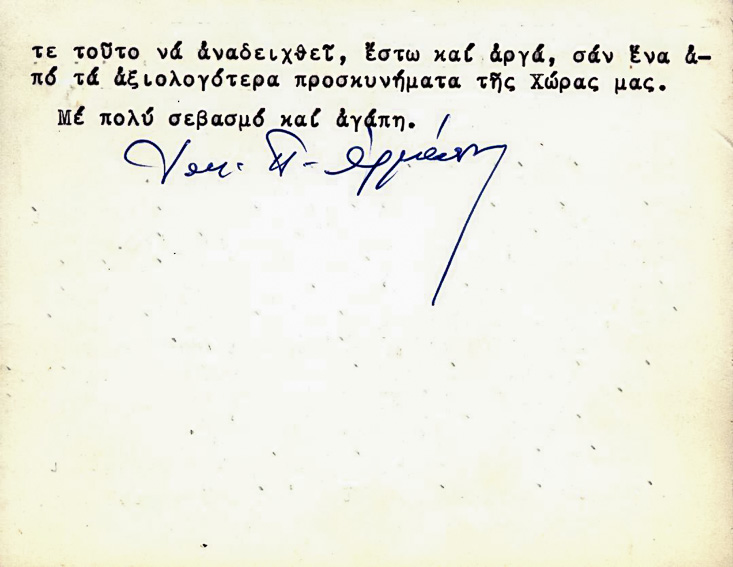 τε τοῦτο νά ἀναδειχθεῖ, ἔστω καί ἀργά, σάν ἕνα ἀ-
πό τά ἀξιολογότερα προσκυνήματα τῆς Χώρας μας.
Μέ πολύ σεβασμό καί ἀγάπη.